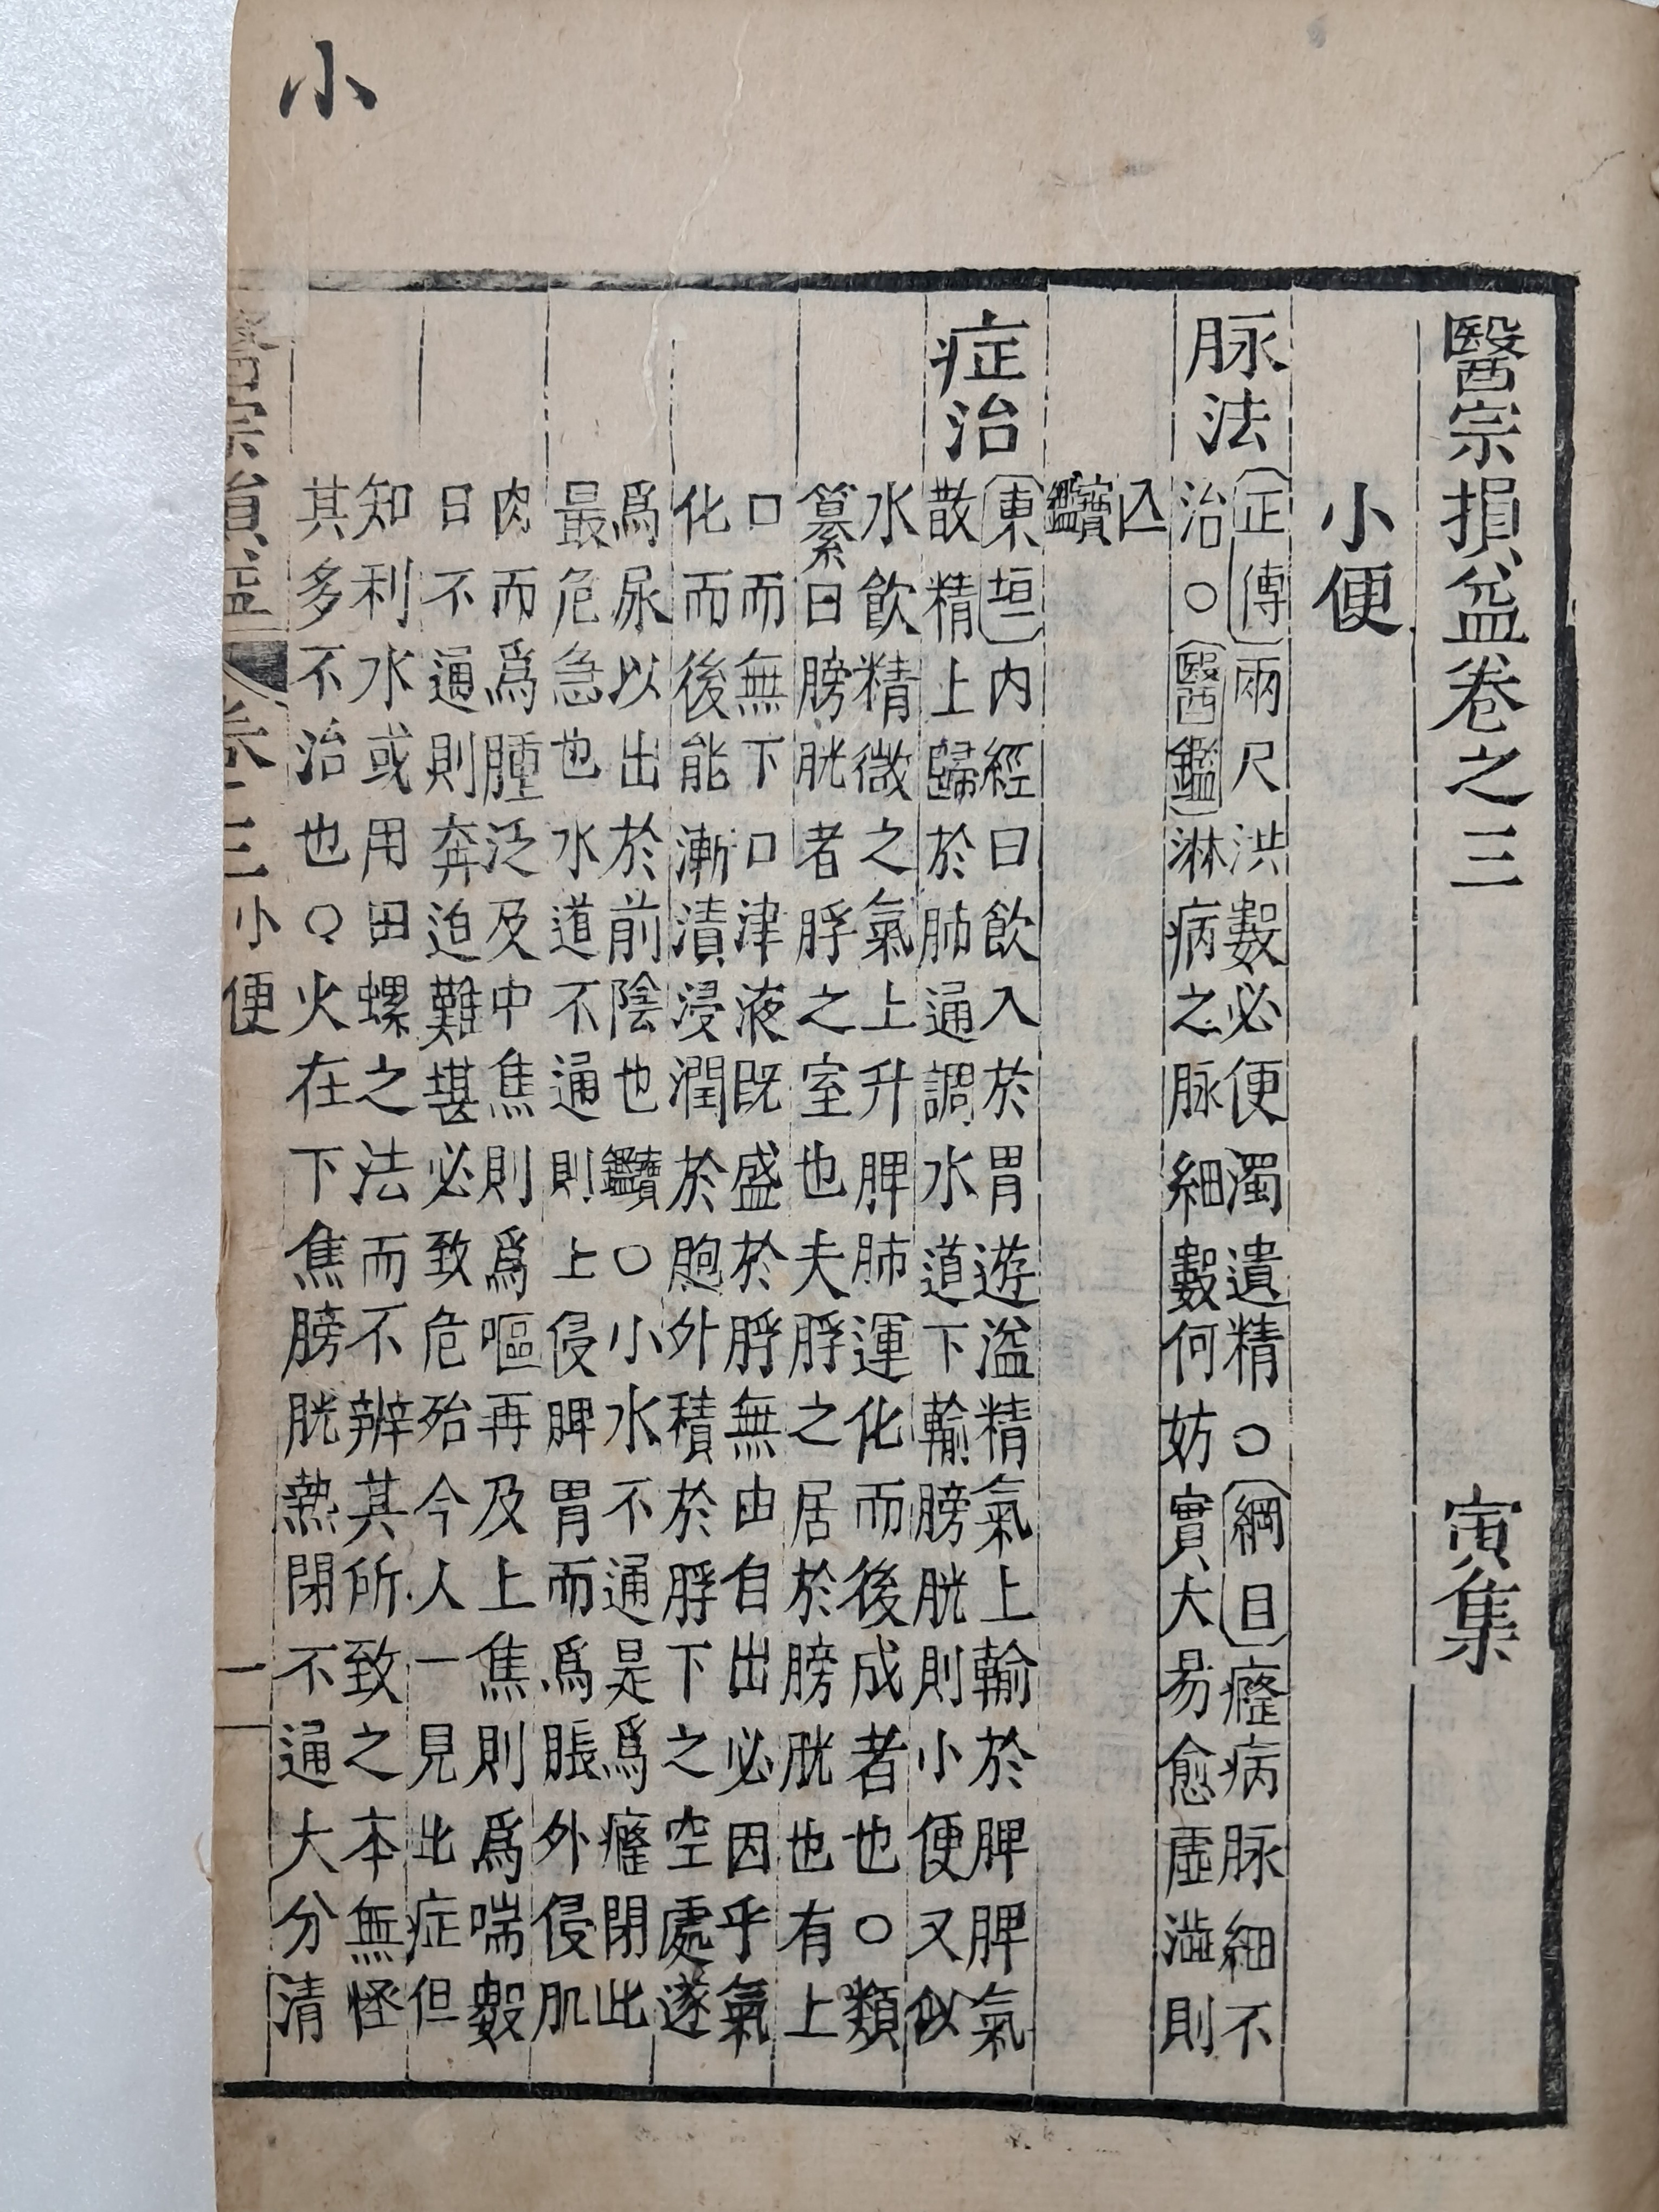 小
醫宗損益卷之三 寅集
小便
脉法
〔正傳〕兩尺洪數必便濁遺精○〔綱目〕癃病脉細不
治○〔醫鑑〕淋病之脉細數何妨實大易愈虛澁則
亾
寶鑑
症治
〔東垣〕內經曰飲入於胃遊溢精氣上輸於脾脾氣
散精上歸於肺通調水道下輸膀胱則小便又似
水飲精微之氣上升脾肺運化而後成者也○類
纂曰膀胱者脬之室也夫脬之居於膀胱也有上
口而無下口津液既盛於脬無由自出必因乎氣
化而後能漸漬浸潤於胞外積於脬下之空處遂
爲尿以出於前陰也寶鑑○小水不通是爲癃閉此
最危急也水道不通則上侵脾胃而爲脹外侵肌
肉而爲腫泛及中焦則爲嘔再及上焦則爲喘數
日不通則奔迫難堪必致危殆今人一見此症但
知利水或用田螺之法而不辨其所致之本無怪
其多不治也○火在下焦膀胱熱閉不通大分清
醫宗損益 卷三 小便 一